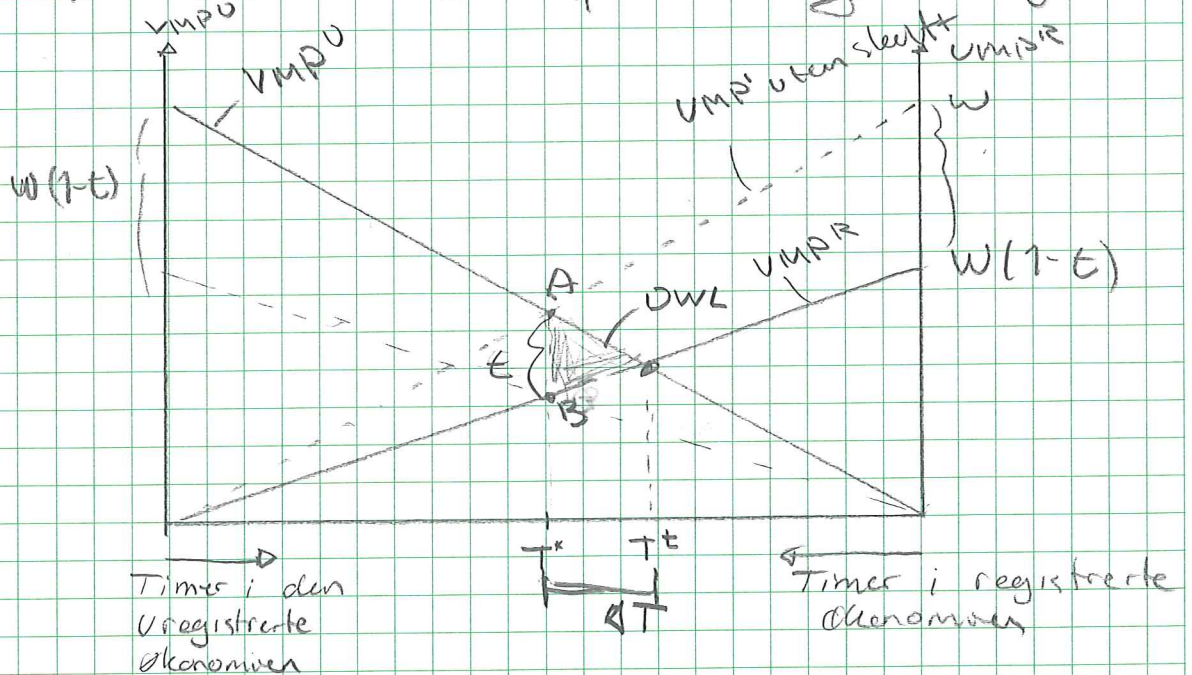 VMPU
VMPU
VMP' uten skatt
VMPR
W
W(1-t)
VMPR
W(1-t)
A
DWL
t
B
T*
Tt
ΔT
Timer i den
Uregistrerte
økonomien
Timer i registrerte
økonomien